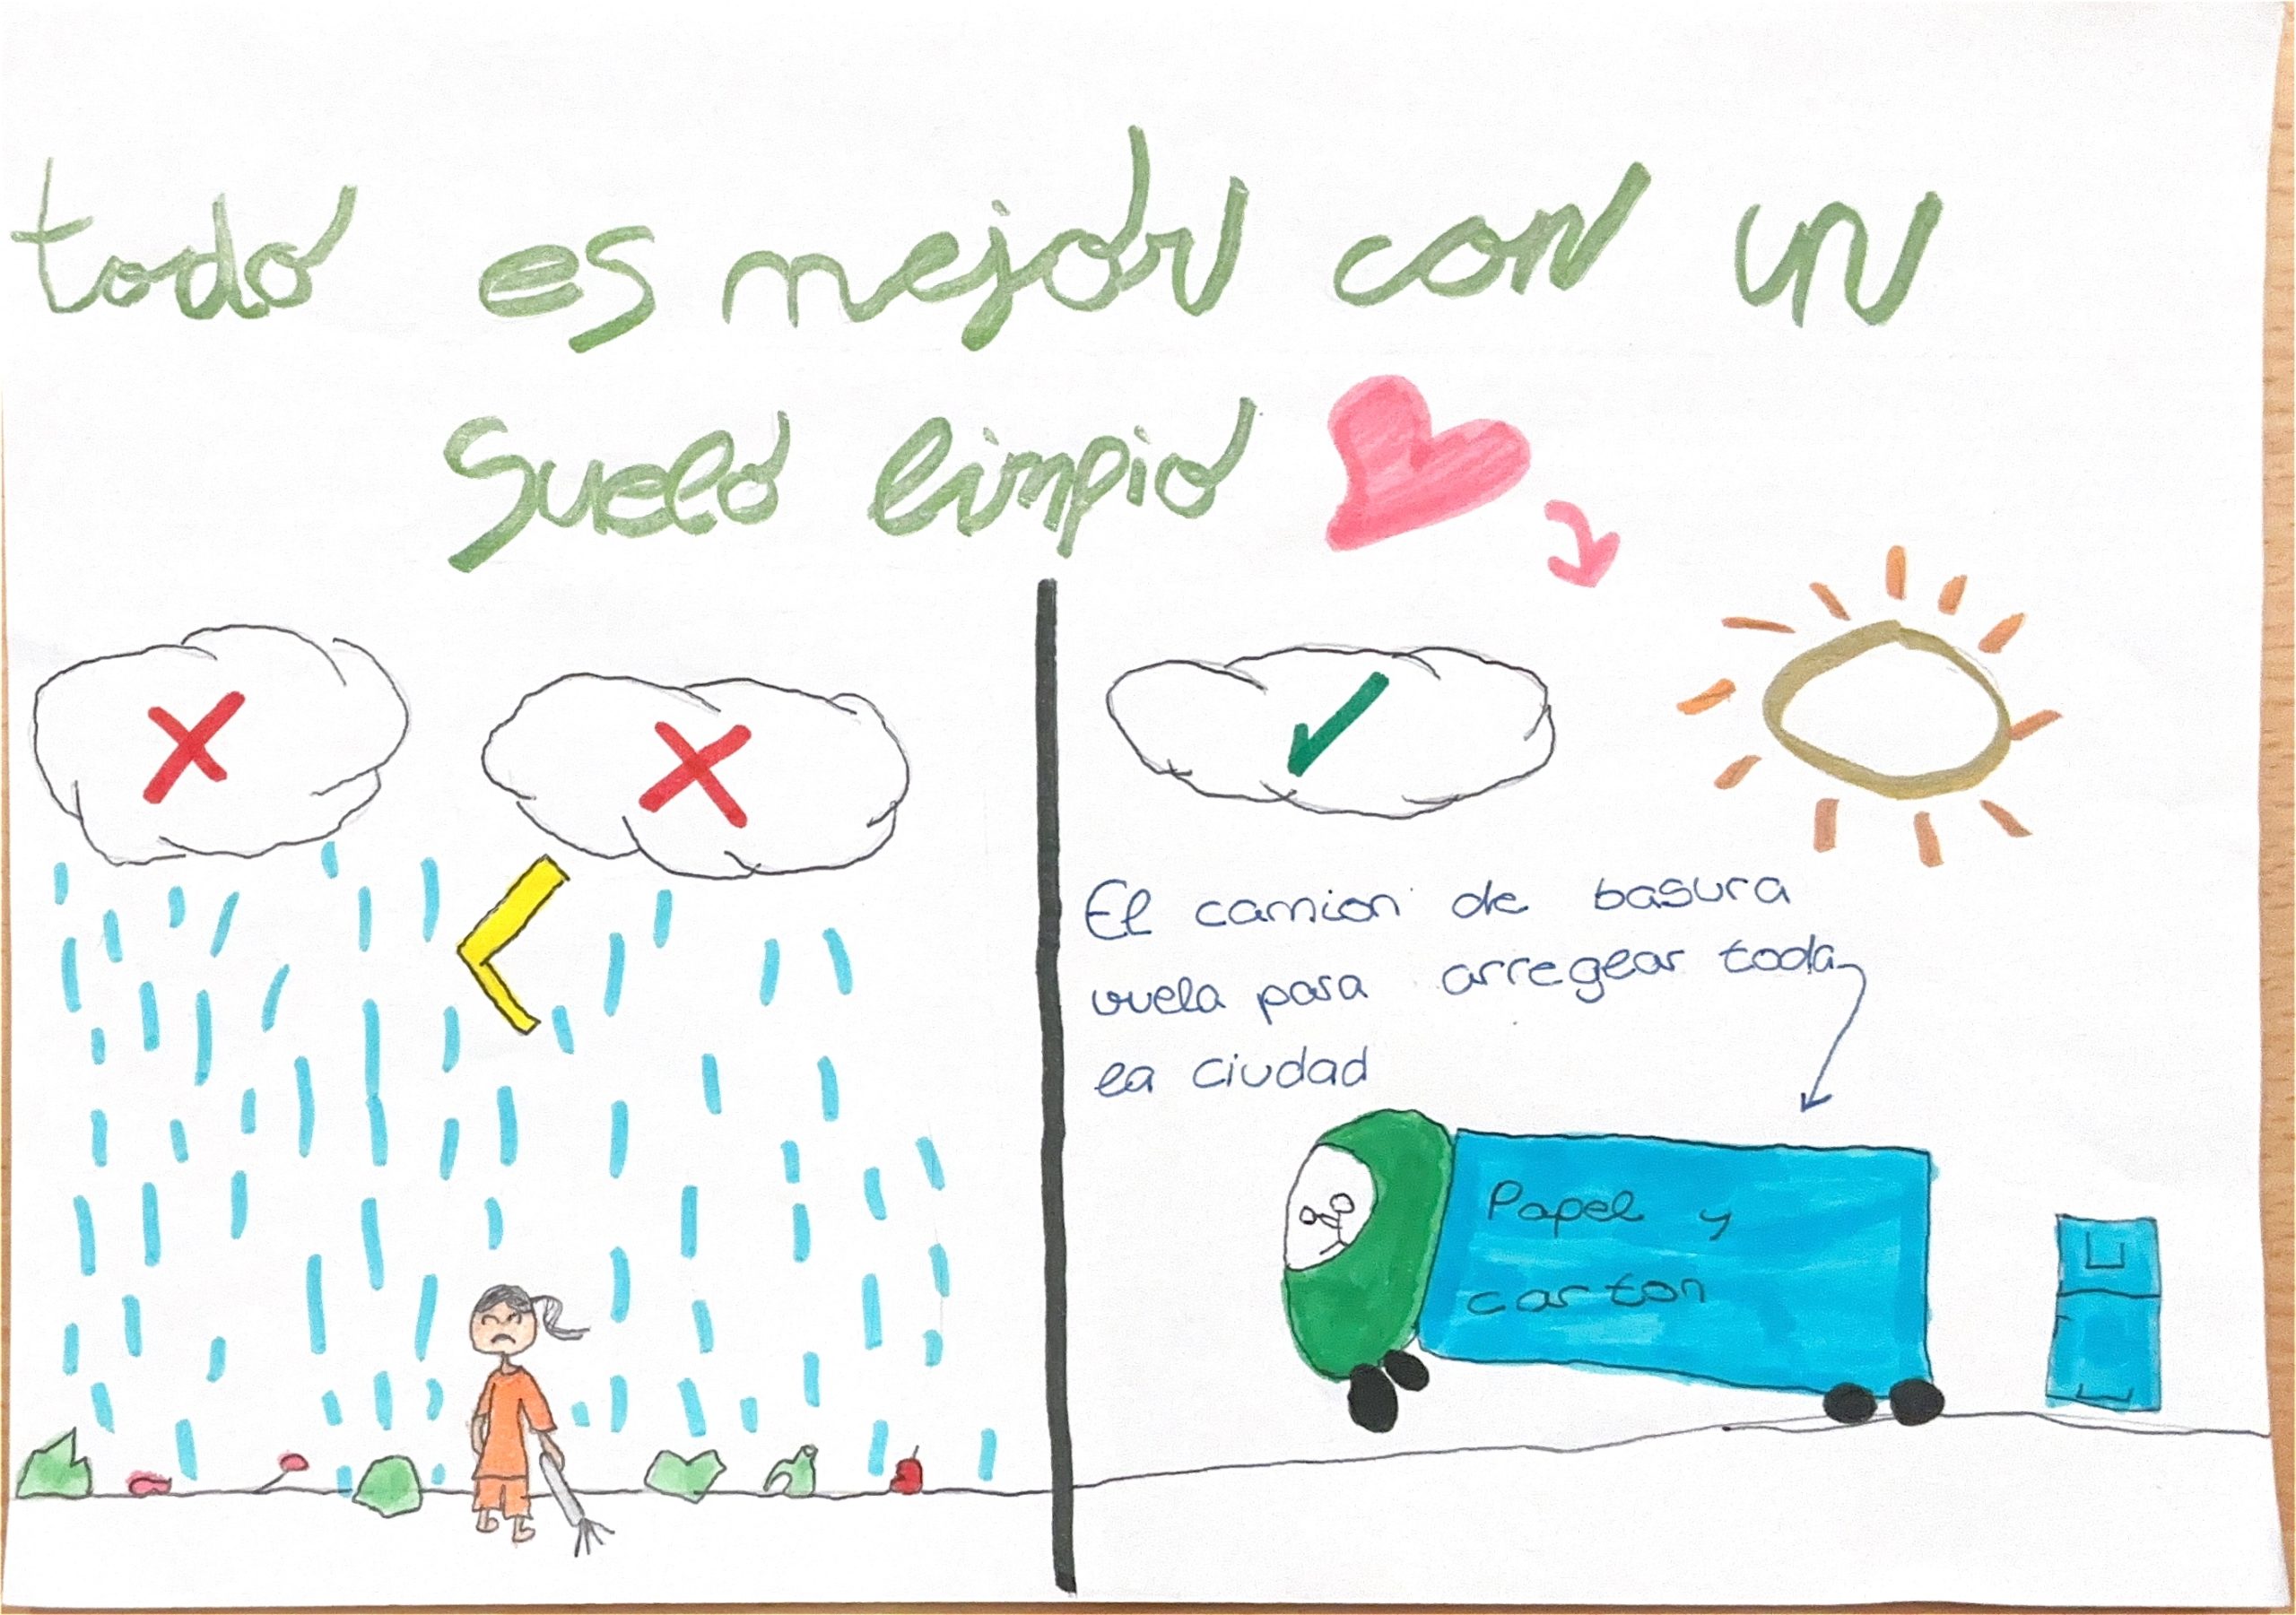 todo es mejor con un
suelo limpio
El camion de basura
vuela para arregear toda
la ciudad
Papel y
carton